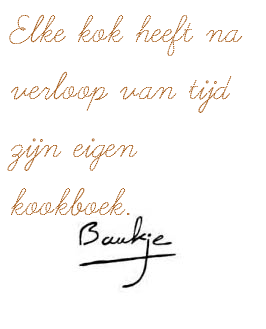 Elke kok heeft na
verloop van tijd
zijn eigen
kookboek.
Baukje